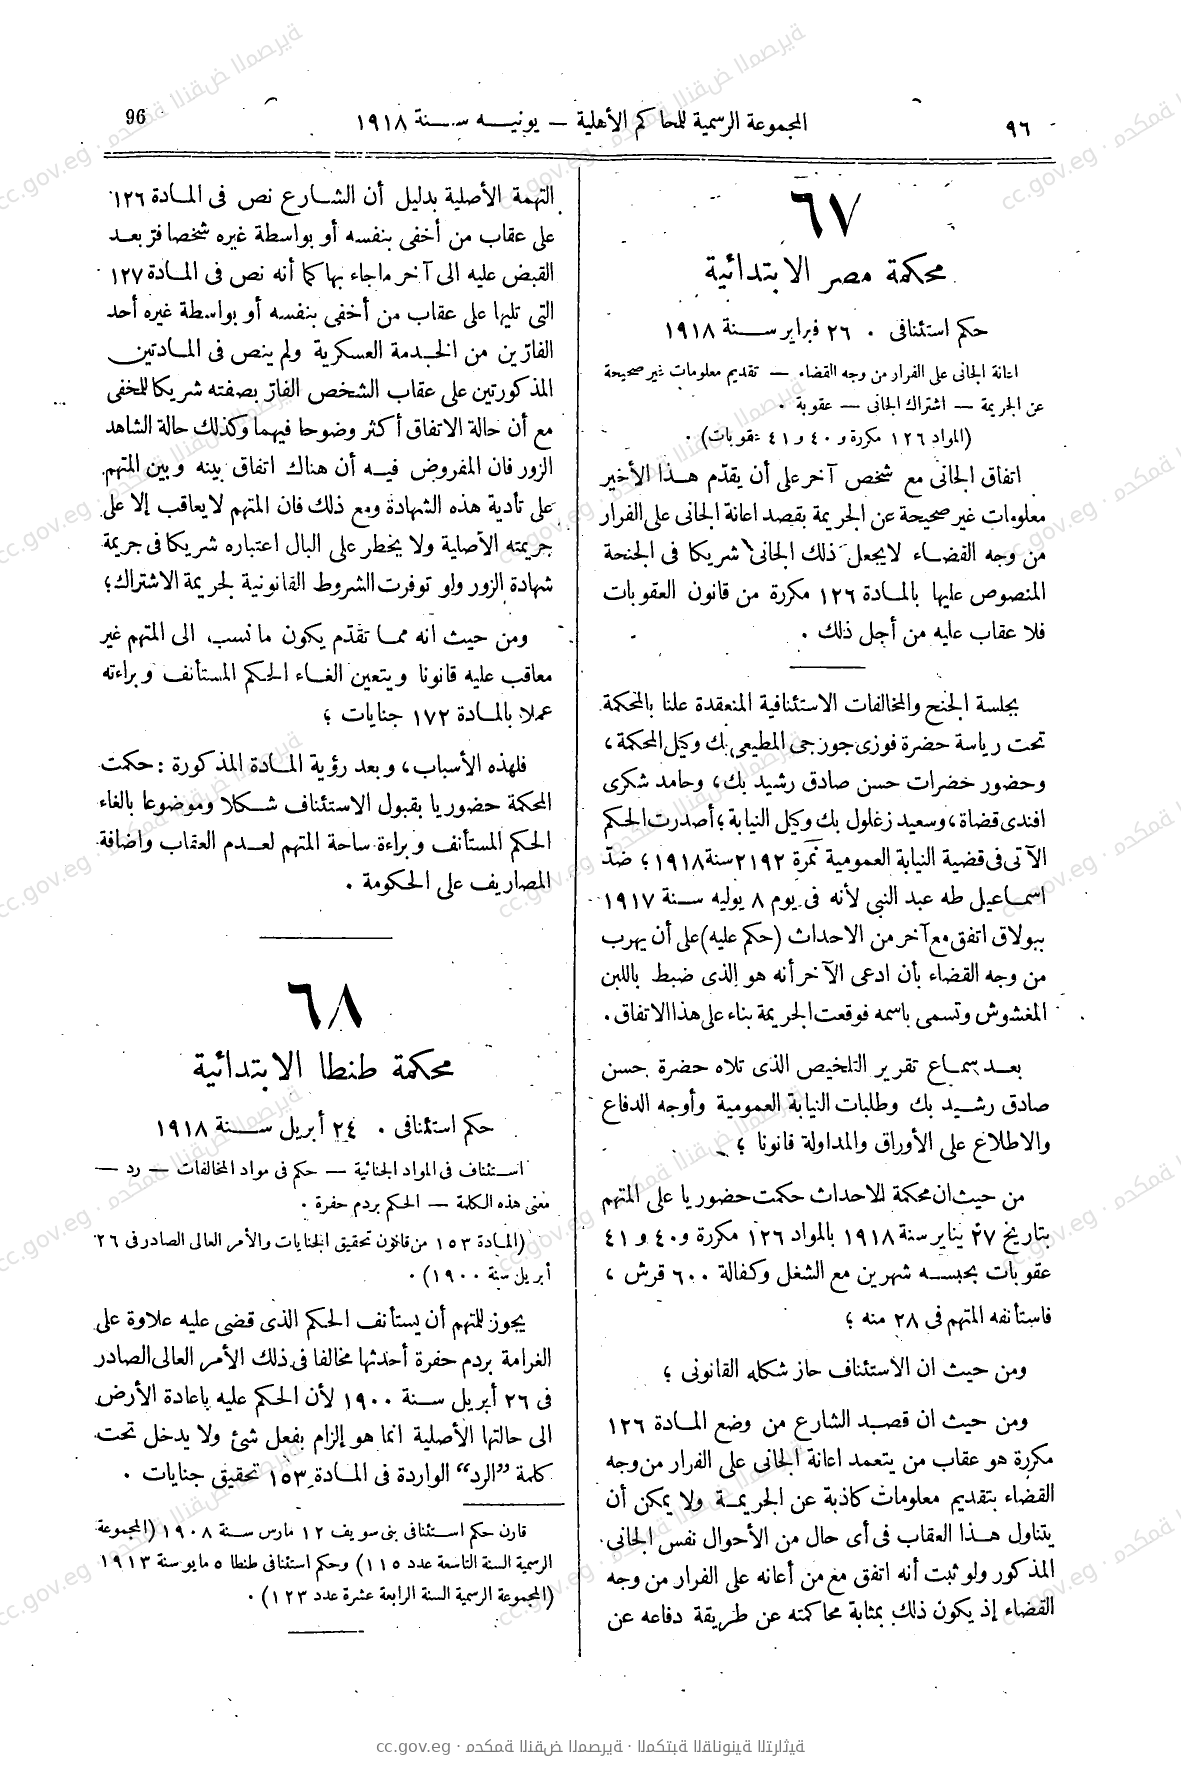 ٩٦
المجموعة الرسمية للمحاكم الأهلية — يونيه سنة ١٩١٨
96
٦٧
محكمة مصر الابتدائية
حكم استئنافى . ٢٦ فبراير سنة ١٩١٨
اعانة الجانى على الفرار من وجه القضاء — تقديم معلومات غير صحيحة
عن الجريمة — اشتراك الجانى — عقوبة .
(المواد ١٢٦ مكررة و ٤٠ و ٤١ عقوبات) .
اتفاق الجانى مع شخص آخر على أن يقدّم هذا الأخير
معلومات غير صحيحة عن الجريمة بقصد اعانة الجانى على الفرار
من وجه القضاء لا يجعل ذلك الجانى شريكا فى الجنحة
المنصوص عليها بالمادة ١٢٦ مكررة من قانون العقوبات
فلا عقاب عليه من أجل ذلك .
بجلسة الجنح والمخالفات الاستئنافية المنعقدة علنا بالمحكمة
تحت رياسة حضرة فوزى جورجى المطيعى بك وكيل المحكمة ،
وحضور حضرات حسن صادق رشيد بك ، وحامد شكرى
افندى قضاة ، وسعيد زغلول بك وكيل النيابة ؛ أصدرت الحكم
الآتى فى قضية النيابة العمومية نمرة ٢١٩٢ سنة ١٩١٨ ؛ ضدّ
اسماعيل طه عبد النبي لأنه فى يوم ٨ يوليه سنة ١٩١٧
ببولاق اتفق مع آخر من الاحداث (حكم عليه) على أن يهرب
من وجه القضاء بأن ادعى الآخر أنه هو الذى ضبط باللبن
المغشوش وتسمى باسمه فوقعت الجريمة بناء على هذا الاتفاق .
بعد سماع تقرير التلخيص الذى تلاه حضرة حسن
صادق رشيد بك وطلبات النيابة العمومية وأوجه الدفاع
والاطلاع على الأوراق والمداولة قانونا ؛
من حيث ان محكمة الاحداث حكمت حضوريا على المتهم
بتاريخ ٢٧ يناير سنة ١٩١٨ بالمواد ١٢٦ مكررة و ٤٠ و ٤١
عقوبات بحبسه شهرين مع الشغل وكفالة ٦٠٠ قرش ،
فاستأنفه المتهم فى ٢٨ منه ؛
ومن حيث ان الاستئناف حاز شكله القانونى ؛
ومن حيث ان قصد الشارع من وضع المادة ١٢٦
مكررة هو عقاب من يتعمد اعانة الجانى على الفرار من وجه
القضاء بتقديم معلومات كاذبة عن الجريمة ولا يمكن أن
يتناول هذا العقاب فى أى حال من الأحوال نفس الجانى
المذكور ولو ثبت أنه اتفق مع من أعانه على الفرار من وجه
القضاء إذ يكون ذلك بمثابة محاكمته عن طريقة دفاعه عن
التهمة الأصلية بدليل أن الشارع نص فى المادة ١٢٦
على عقاب من أخفى بنفسه أو بواسطة غيره شخصا فرّ بعد
القبض عليه الى آخر ما جاء بها كما أنه نص فى المادة ١٢٧
التى تليها على عقاب من أخفى بنفسه أو بواسطة غيره أحد
الفارّين من الخدمة العسكرية ولم ينص فى المادتين
المذكورتين على عقاب الشخص الفارّ بصفته شريكا للمخفى
مع أن حالة الاتفاق أكثر وضوحا فيهما وكذلك حالة الشاهد
الزور فان المفروض فيه أن هناك اتفاق بينه وبين المتهم
على تأدية هذه الشهادة ومع ذلك فان المتهم لا يعاقب إلا على
جريمته الأصلية ولا يخطر على البال اعتباره شريكا فى جريمة
شهادة الزور ولو توفرت الشروط القانونية لجريمة الاشتراك ؛
ومن حيث انه مما تقدّم يكون ما نسب الى المتهم غير
معاقب عليه قانونا ويتعين الغاء الحكم المستأنف وبراءته
عملا بالمادة ١٧٢ جنايات ؛
فلهذه الأسباب ، وبعد رؤية المادة المذكورة : حكمت
المحكمة حضوريا بقبول الاستئناف شكلا وموضوعا بالغاء
الحكم المستأنف وبراءة ساحة المتهم لعدم العقاب واضافة
المصاريف على الحكومة .
٦٨
محكمة طنطا الابتدائية
حكم استئنافى . ٢٤ أبريل سنة ١٩١٨
استئناف فى المواد الجنائية — حكم فى مواد المخالفات — رد —
معنى هذه الكلمة — الحكم بردم حفرة .
(المادة ١٥٣ من قانون تحقيق الجنايات والأمر العالى الصادر فى ٢٦
أبريل سنة ١٩٠٠) .
يجوز للمتهم أن يستأنف الحكم الذى قضى عليه علاوة على
الغرامة بردم حفرة أحدثها مخالفا فى ذلك الأمر العالى الصادر
فى ٢٦ أبريل سنة ١٩٠٠ لأن الحكم عليه باعادة الأرض
الى حالتها الأصلية انما هو إلزام بفعل شئ ولا يدخل تحت
كلمة ”الرد“ الواردة فى المادة ١٥٣ تحقيق جنايات .
قارن حكم استئنافى بنى سويف ١٢ مارس سنة ١٩٠٨ (المجموعة
الرسمية السنة التاسعة عدد ١١٥) وحكم استئنافى طنطا ٥ مايو سنة ١٩١٣
(المجموعة الرسمية السنة الرابعة عشرة عدد ١٢٣) .
cc.gov.eg · محكمة النقض المصرية · المكتبة القانونية التراثية